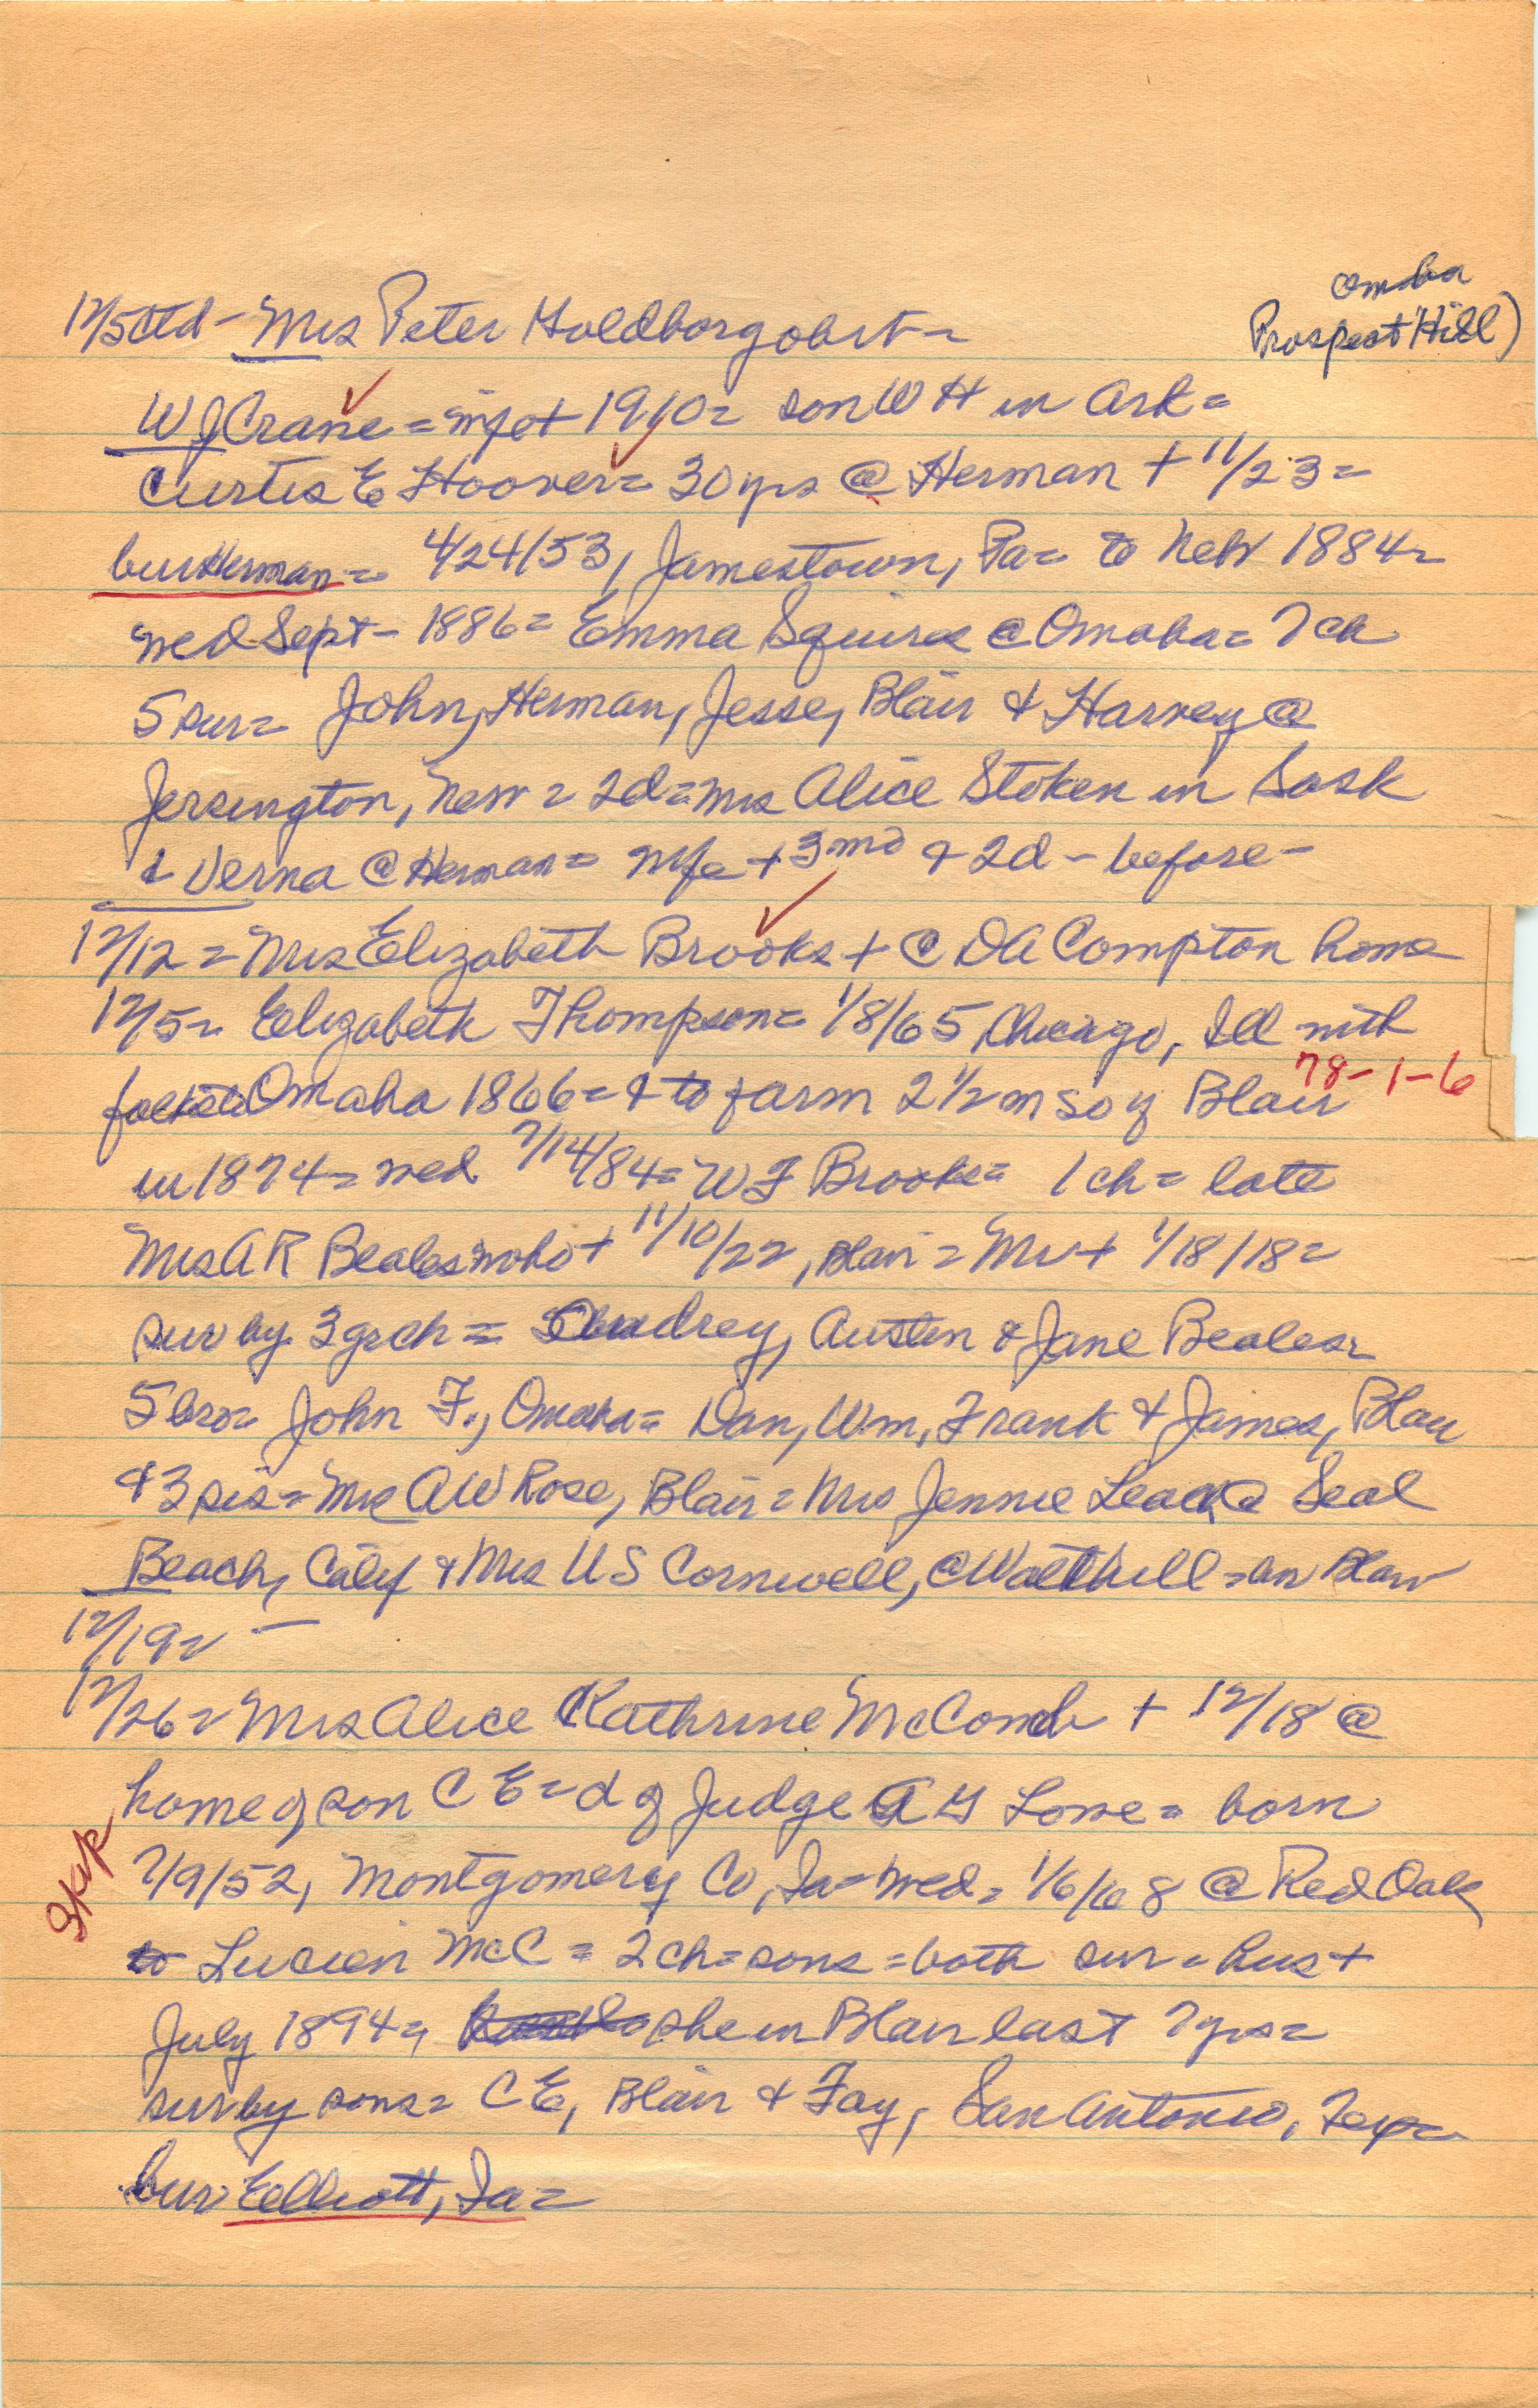 Omaha
Prospect Hill)
12/5 ctd - Mrs Peter Holdborg obit =
W J Crane = wife + 1910 = son W H in Ark =
Curtis E Hoover = 30 yrs @ Herman + 11/23 =
bur Herman = 4/24/53, Jamestown, Pa = to Neb 1884 =
wed Sept - 1886 = Emma Squires @ Omaha = 7 ch
5 sur = John, Herman, Jesse, Blair & Harvey @
Jerington, Nev = 2d = Mrs Alice Stoken in Sask
& Verna @ Herman = wife + 3 mo & 2d - before -
12/12 = Mrs Elizabeth Brooks + @ D A Compton home
12/5 = Elizabeth Thompson = 1/8/65 Chicago, Ill with
folks to Omaha 1866 = & to farm 2 1/2 m so of Blair 78-1-6
in 1874 = wed 7/14/84 = W F Brooks = 1 ch = late
Mrs A R Beales who + 11/10/22, Blair = Mr + 1/18/18 =
sur by 3 grch = Audrey, Austin & Jane Beales =
5 bro = John F., Omaha = Dan, Wm, Frank & James, Blair
& 3 sis = Mrs A W Rose, Blair = Mrs Jennie Leack @ Seal
Beach, Calif & Mrs U S Cornwell, @ Walthill = bur Blair
12/19 = -
12/26 = Mrs Alice Kathrine McComb + 12/18 @
home of son C E = d of Judge A G Lowe = born
Skip
7/9/52, Montgomery Co, Ia = wed = 1/6/68 @ Red Oak
to Lucien McC = 2 ch = sons = both sur = hus +
July 1894 = she in Blair last 7 yrs =
sur by sons = C E, Blair & Fay, San Antonio, Tex =
bur Elliott, Ia =